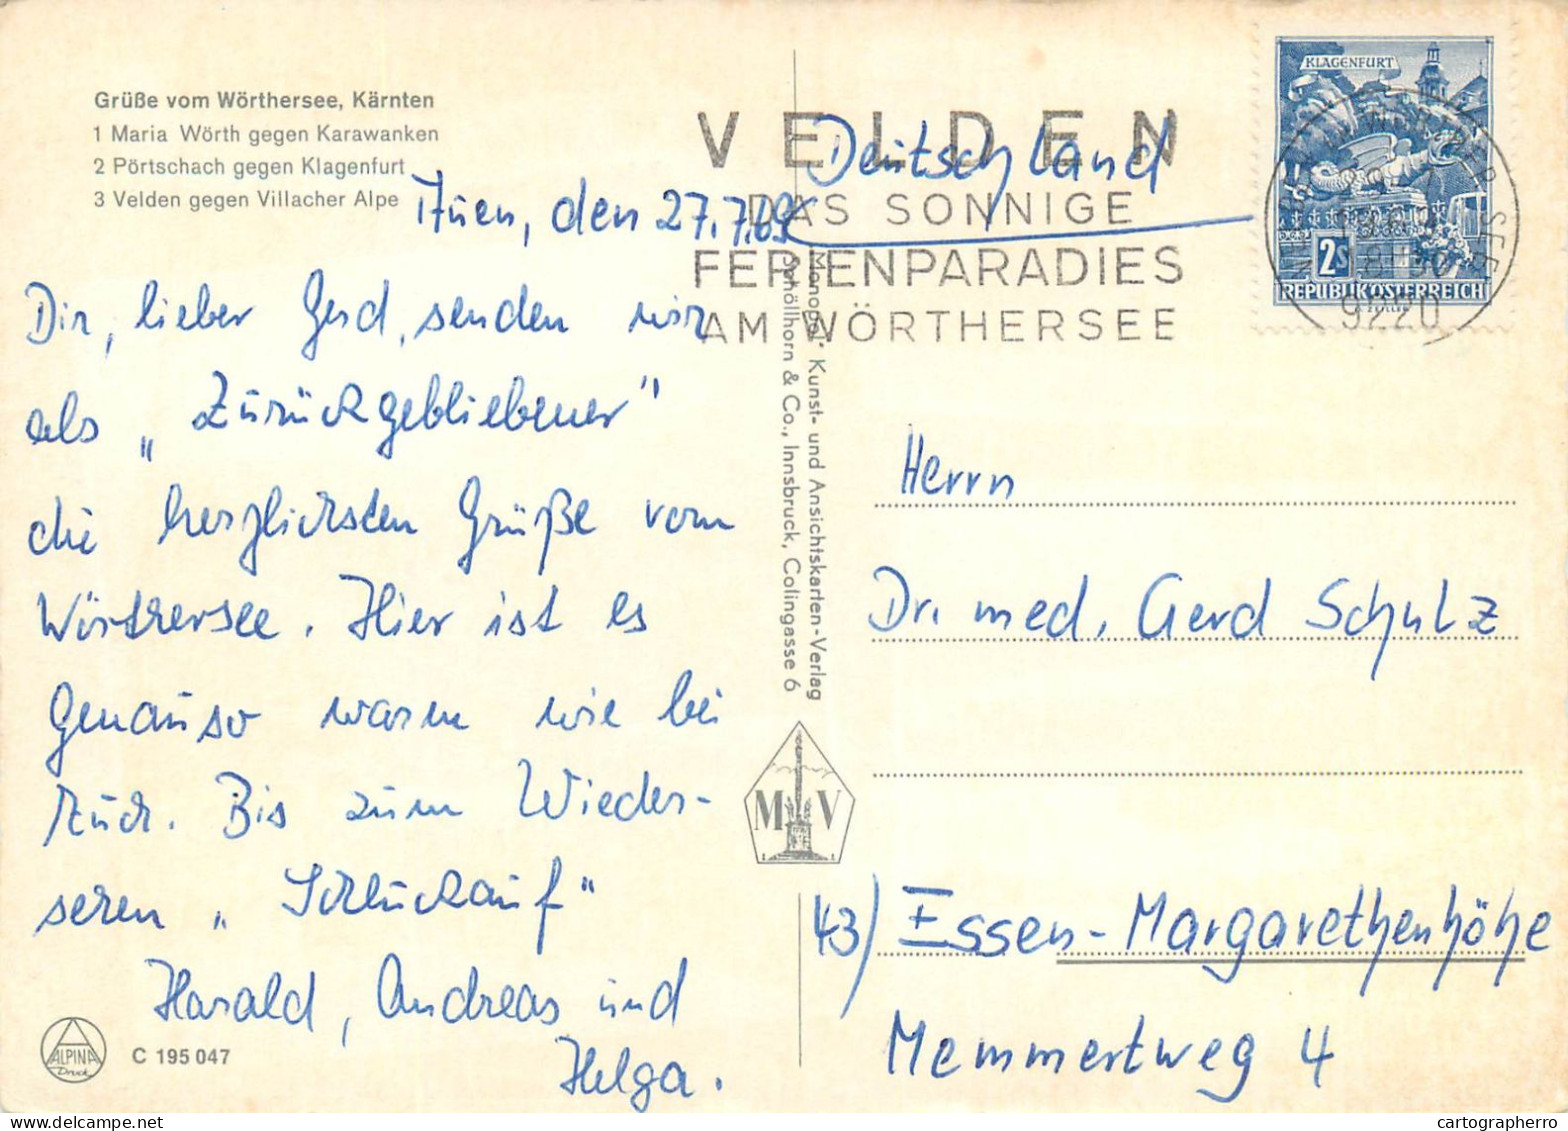 Grüße vom Wörthersee, Kärnten
1 Maria Wörth gegen Karawanken
2 Pörtschach gegen Klagenfurt
3 Velden gegen Villacher Alpe
den 27.7.69
Dir, lieber Gerd, senden wir
als „Zurückgebliebener"
die herzlichsten Grüße vom
Wörthersee. Hier ist es
genauso warm wie bei
Euch. Bis zum Wieder-
sehen „Schluckauf"
Harald, Andreas und
Helga.
ALPINA
Druck
C 195 047
Monopol" Kunst- und Ansichtskarten-Verlag
Schöllhorn & Co., Innsbruck, Colingasse 6
M V
VELDEN
DAS SONNIGE
FERIENPARADIES
AM WÖRTHERSEE
Deutschland
KLAGENFURT
2S
REPUBLIK ÖSTERREICH
9220
Herrn
Dr. med. Gerd Schulz
43) Essen-Margarethenhöhe
Memmertweg 4
cartographerro